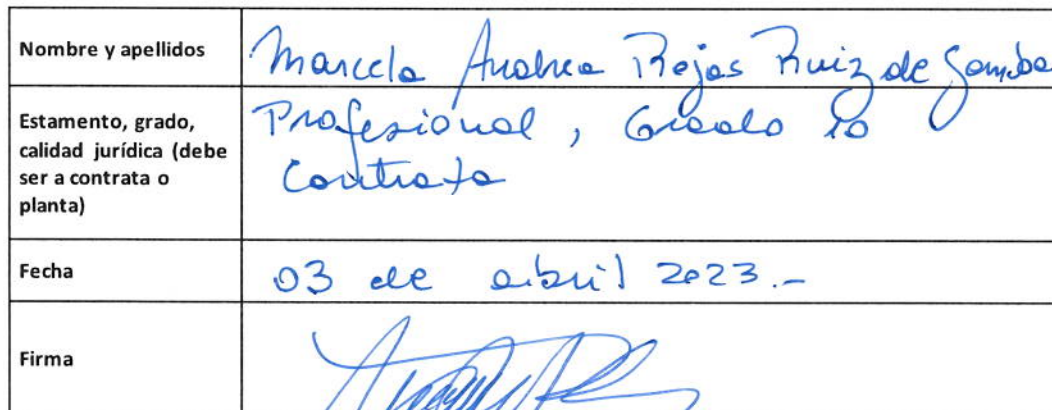 Nombre y apellidos
Marcela Andrea Rojas Ruiz de Gamboa
Estamento, grado,
calidad jurídica (debe
ser a contrata o
planta)
Profesional, Grado 10
Contrata
Fecha
03 de abril 2023.-
Firma